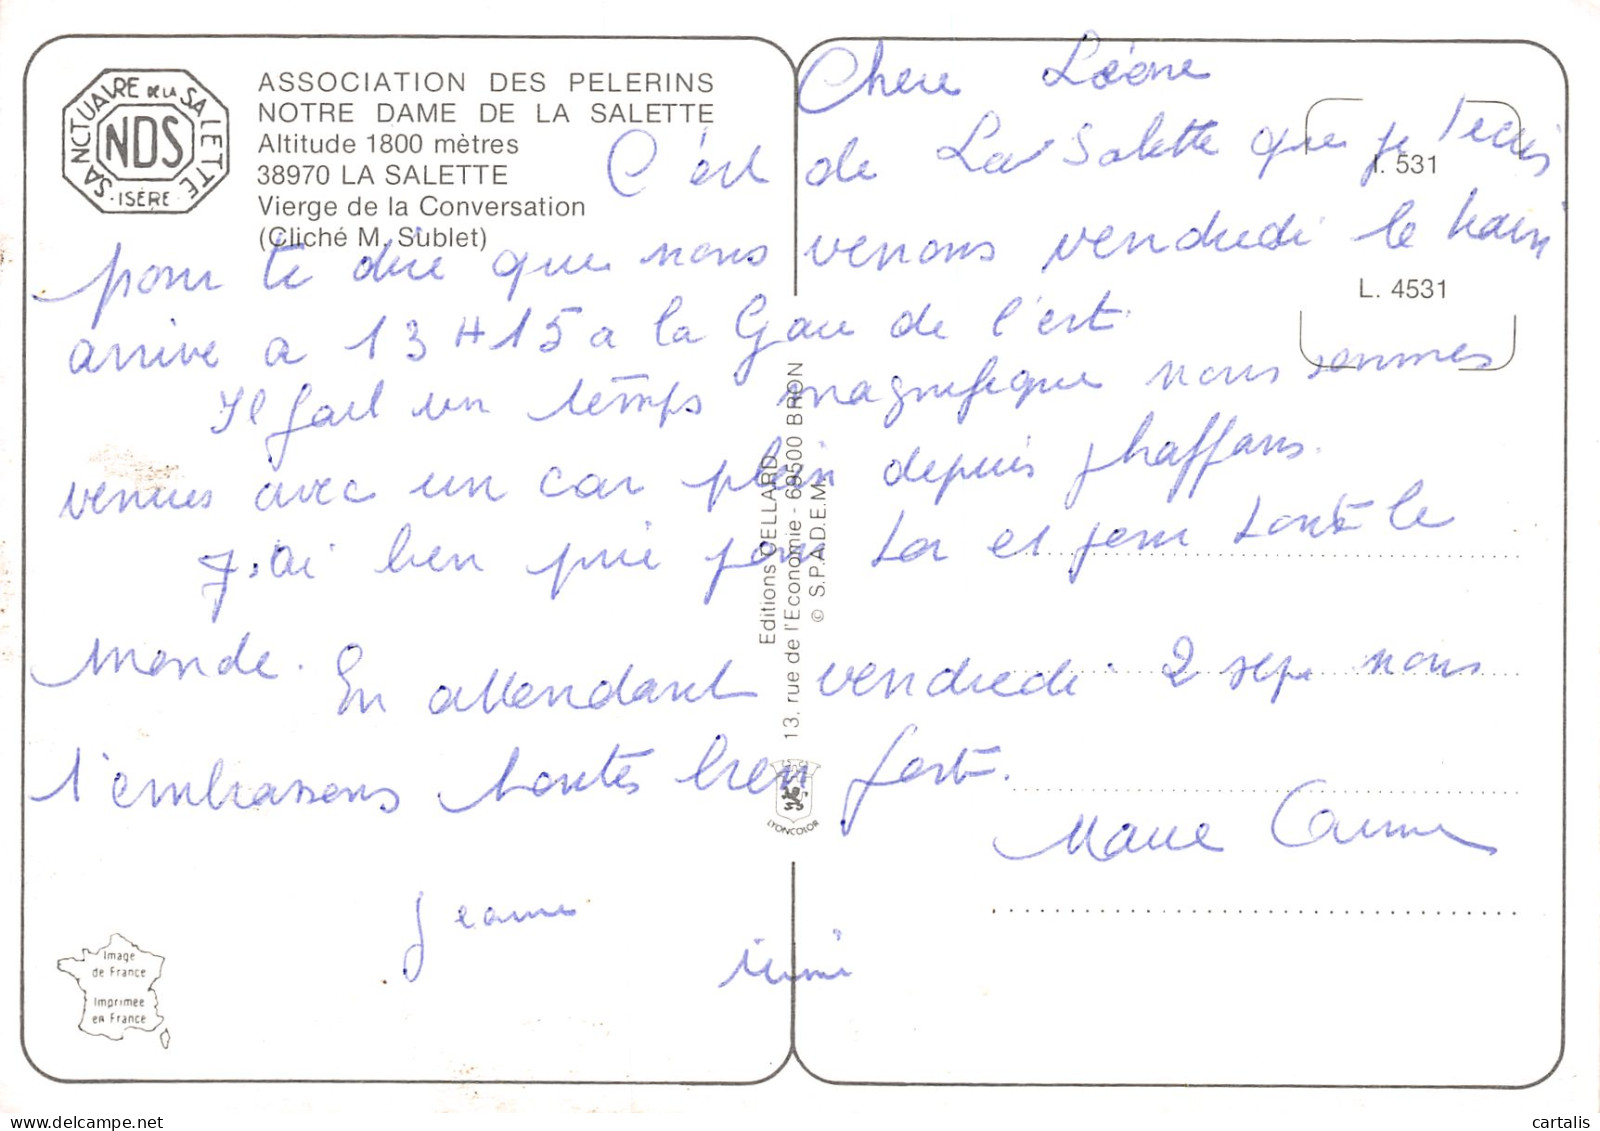 SANCTUAIRE DE LA SALETTE
NDS
·ISÈRE·
ASSOCIATION DES PELERINS
NOTRE DAME DE LA SALETTE
Altitude 1800 mètres
38970 LA SALETTE
Vierge de la Conversation
(Cliché M. Sublet)
I. 531
L. 4531
Chere Léone
C'est de La Salette que je t'ecris
pour te dire que nous venons vendredi le train
arrive a 13H15 a la Gare de l'est.
Il fait un temps magnifique nous sommes
venues avec un car plein depuis
J'ai bien prié pour toi et pour tout le
monde. En attendant vendredi 2 sept nous
t'embrassons toutes bien fort.
Marie
Jeanne
Mimi
Editions CELLARD
13, rue de l'Economie - 69500 BRON
© S.P.A.D.E.M.
LYONCOLOR
Image
de France
Imprimée
en France
cartalis
www.delcampe.net